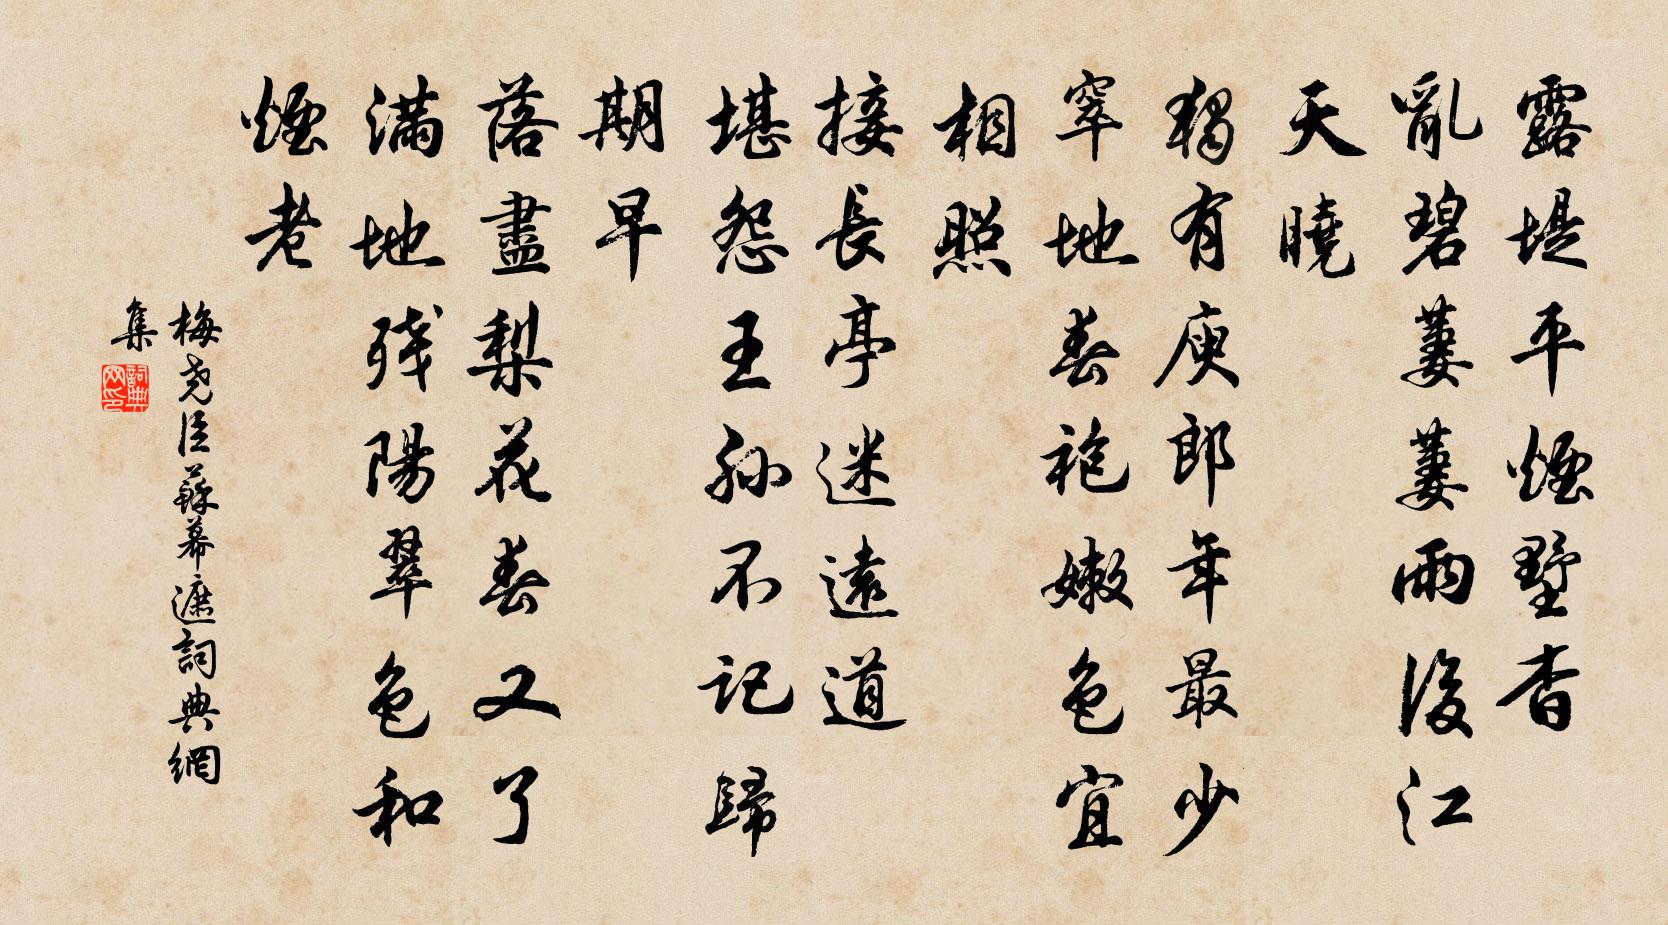 露堤平煙墅杳
亂碧萋萋雨後江
天曉
獨有庾郎年最少
窣地春袍嫩色宜
相照
接長亭迷遠道
堪怨王孫不記歸
期早
落盡梨花春又了
滿地殘陽翠色和
煙老
梅堯臣蘇幕遮詞典網
集
詞典
网印